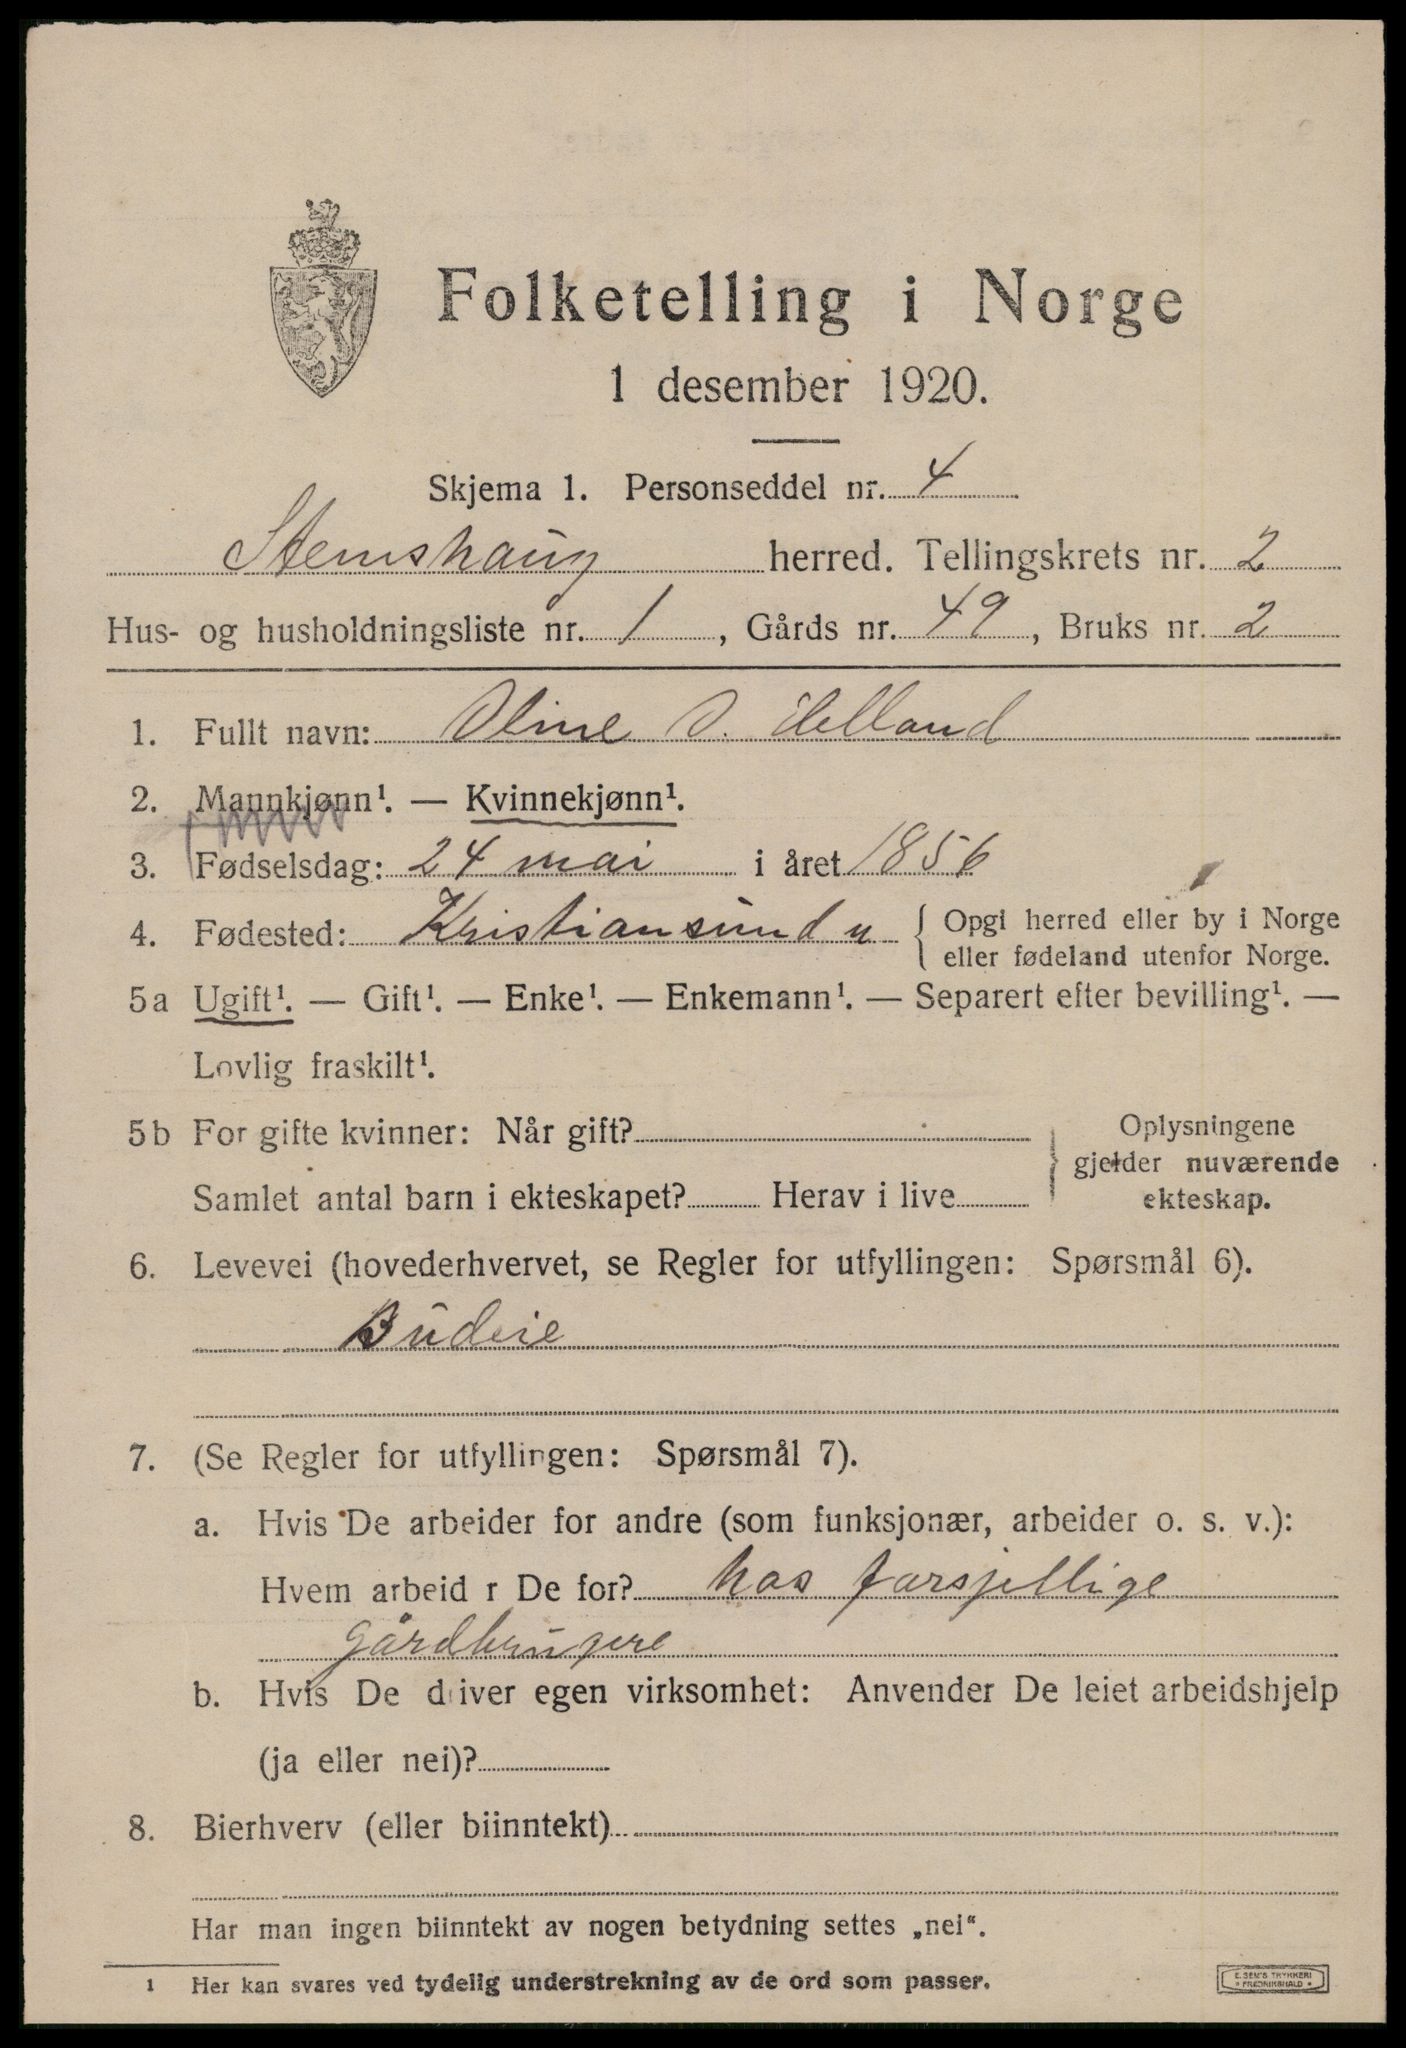 Folketelling i Norge
1 desember 1920.
Skjema 1. Personseddel nr. 4
Stemshaug herred. Tellingskrets nr. 2
Hus- og husholdningsliste nr. 1, Gårds nr. 49, Bruks nr. 2
1. Fullt navn: Oline O. Helland
2. Mannkjønn¹. — Kvinnekjønn¹.
3. Fødselsdag: 24 mai i året 1856
4. Fødested: Kristiansund n { Opgi herred eller by i Norge
eller fødeland utenfor Norge.
5a Ugift¹. — Gift¹. — Enke¹. — Enkemann¹. — Separert efter bevilling¹. —
Lovlig fraskilt¹.
5b For gifte kvinner: Når gift?
Samlet antal barn i ekteskapet? Herav i live
Oplysningene
gjelder nuværende
ekteskap.
6. Levevei (hovederhvervet, se Regler for utfyllingen: Spørsmål 6).
Budeie
7. (Se Regler for utfyllingen: Spørsmål 7).
a. Hvis De arbeider for andre (som funksjonær, arbeider o. s. v.):
Hvem arbeid r De for? hos forsjellige
gårdbrugere
b. Hvis De driver egen virksomhet: Anvender De leiet arbeidshjelp
(ja eller nei)?
8. Bierhverv (eller biinntekt)
Har man ingen biinntekt av nogen betydning settes „nei“.
1 Her kan svares ved tydelig understrekning av de ord som passer.
E. SEM'S TRYKKERI
* FREDRIKSHALD *